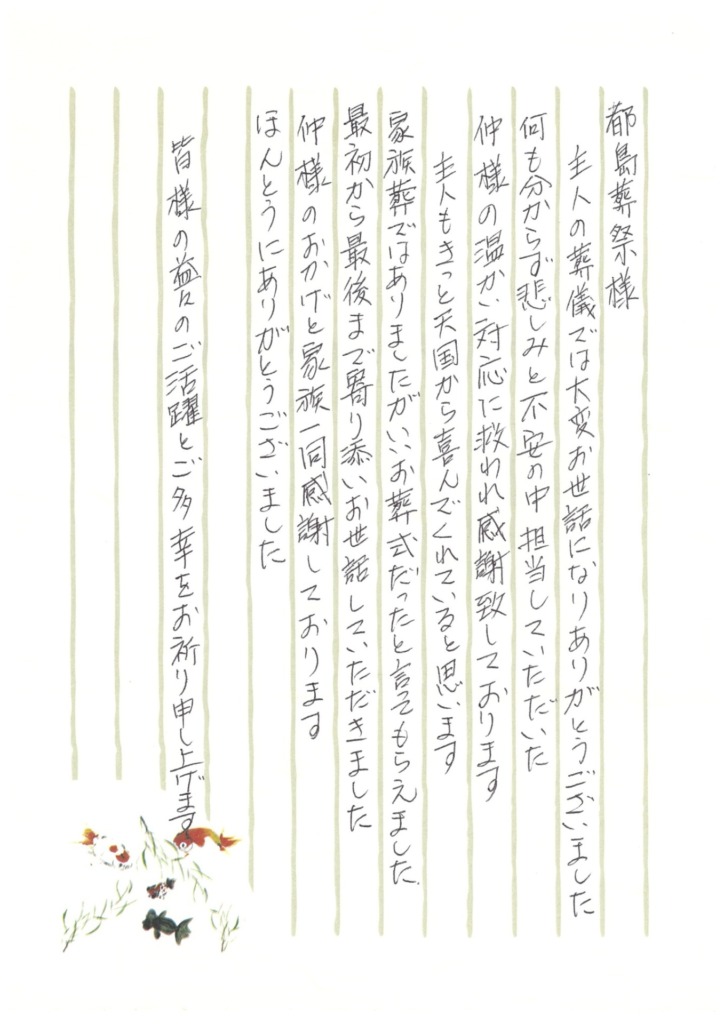 都島葬祭様
主人の葬儀では大変お世話になりありがとうございました
何も分からず悲しみと不安の中担当していただいた
仲様の温かい対応に救われ感謝致しております
主人もきっと天国から喜んでくれていると思います
家族葬ではありましたがいいお葬式だったと言てもらえました.
最初から最後まで寄り添いお世話していただきました
仲様のおかげと家族一同感謝しております
ほんとうにありがとうございました
皆様の益々のご活躍とご多幸をお祈り申し上げます